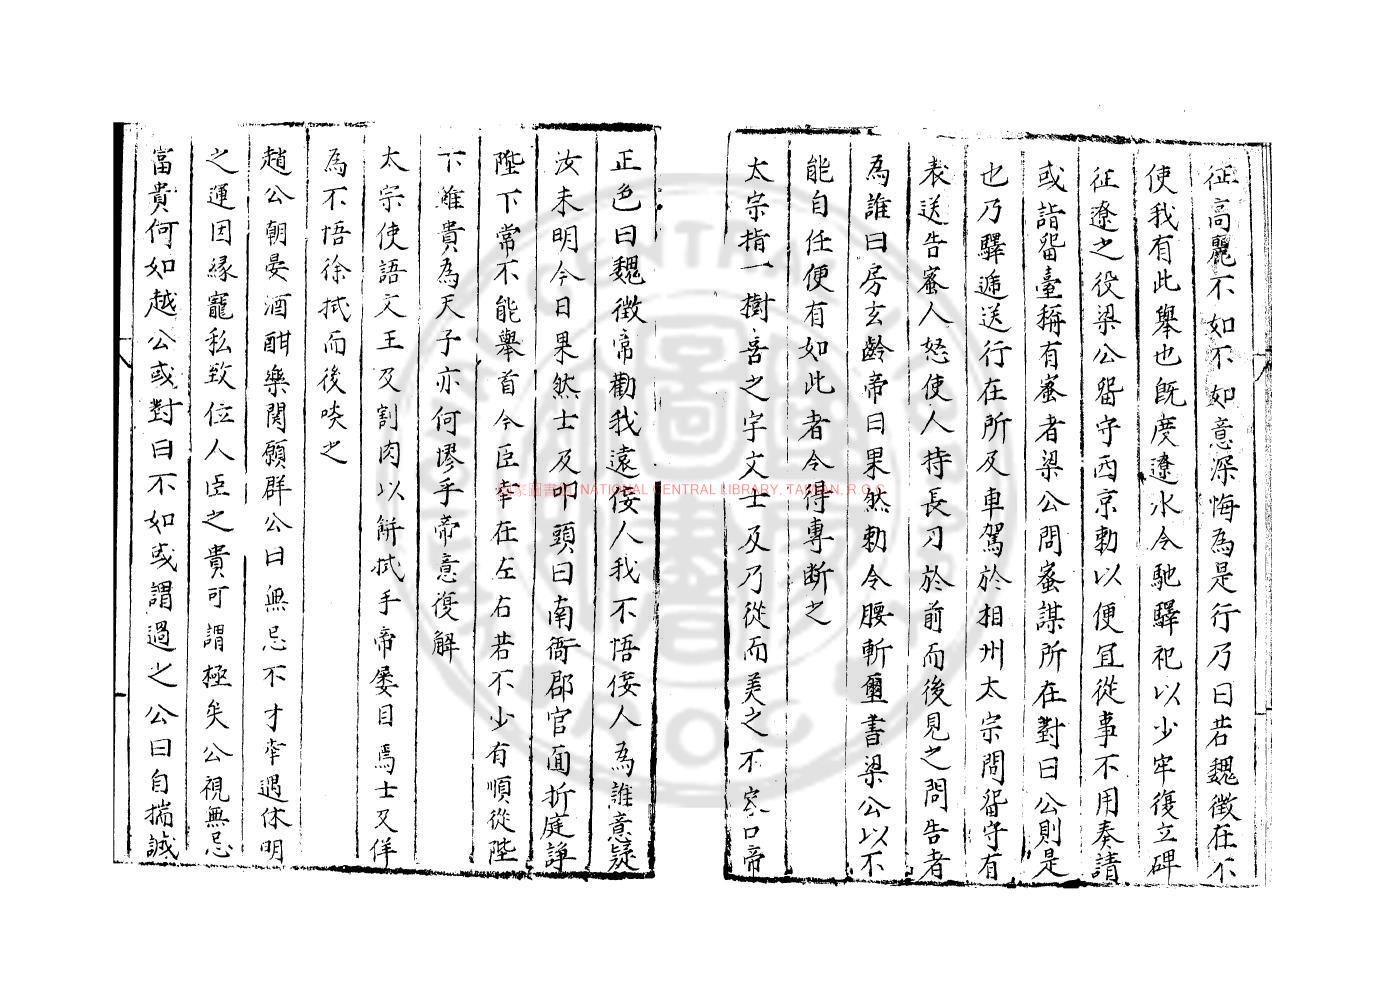 征高麗不如不如意深悔為是行乃曰若魏徵在不
使我有此舉也既度遼水令馳驛祀以少牢復立碑
征遼之役梁公畱守西京勅以便宜從事不用奏請
或詣畱臺稱有蜜者梁公問蜜謀所在對曰公則是
也乃驛遞送行在所及車駕於相州太宗聞畱守有
表送告蜜人怒使人持長刀於前而後見之問告者
為誰曰房玄齡帝曰果然勅令腰斬璽書梁公以不
能自任便有如此者令得專斷之
太宗指一樹善之宇文士及乃從而美之不容口帝
正色曰魏徵常勸我遠佞人我不悟佞人為誰意疑
汝未明今日果然士及叩頭曰南衙郡官面折庭諍
陛下常不能舉首今臣幸在左右若不少有順從陛
下雖貴為天子亦何憀乎帝意復解
太宗使語文王及割肉以餅拭手帝屢目焉士又佯
為不悟徐拭而後啖之
趙公朝晏酒酣樂闋願群公曰無忌不才幸遇休明
之運因緣寵私致位人臣之貴可謂極矣公視無忌
富貴何如越公或對曰不如或謂過之公曰自揣誠
國家圖書館 NATIONAL CENTRAL LIBRARY, TAIWAN, R.O.C